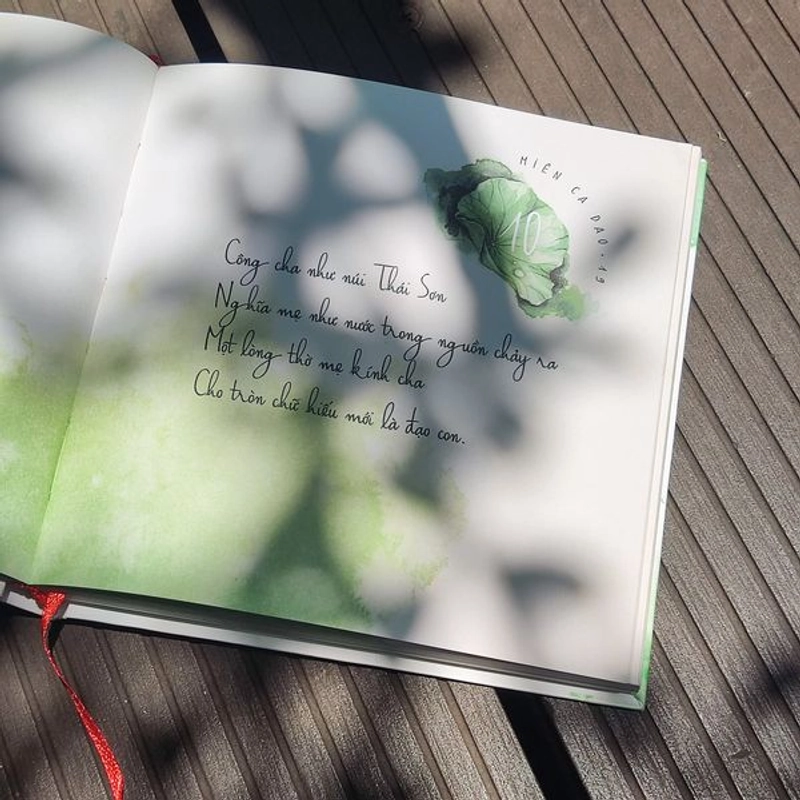 MIÊN CA DAO • 19
10
Công cha như núi Thái Sơn
Nghĩa mẹ như nước trong nguồn chảy ra
Một lòng thờ mẹ kính cha
Cho tròn chữ hiếu mới là đạo con.